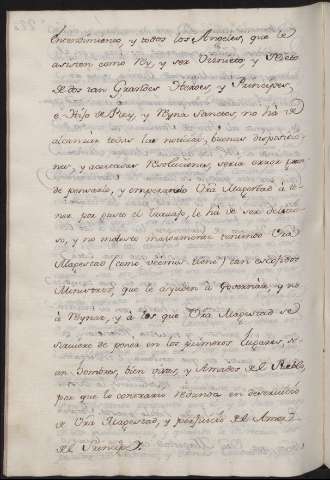 Entendimiento, y todos los Angeles, que le
asisten como Rey, y ser Visnieto, y Nieto
de dos tan Grandes Heroes, y Principes,
e Hijo de Rey, y Reyna Sanctos, no há de
alcanzar todas las noticias, buenas disposicio-
nes, y acertadas Resoluciones, seria error gran-
de pensarlo, y empezando Vrã Magestad à to-
mar por gusto el trabajo, le há de ser delicio-
so, y no molesto maiormente teniendo Vrã
Magestad (como vècmos tiene) tan escogidos
Ministros, que le ayuden à Governàr, y no
à Reynar, y à los que Vrã Magestad se
sirviere de poner en los primeros lugares, se-
an hombres, bien vistos, y Amados de el Pueblo,
por que lo contrario redunda en deservicio
de Vrã Magestad, y perjuicio de el Amor
de el Principe.